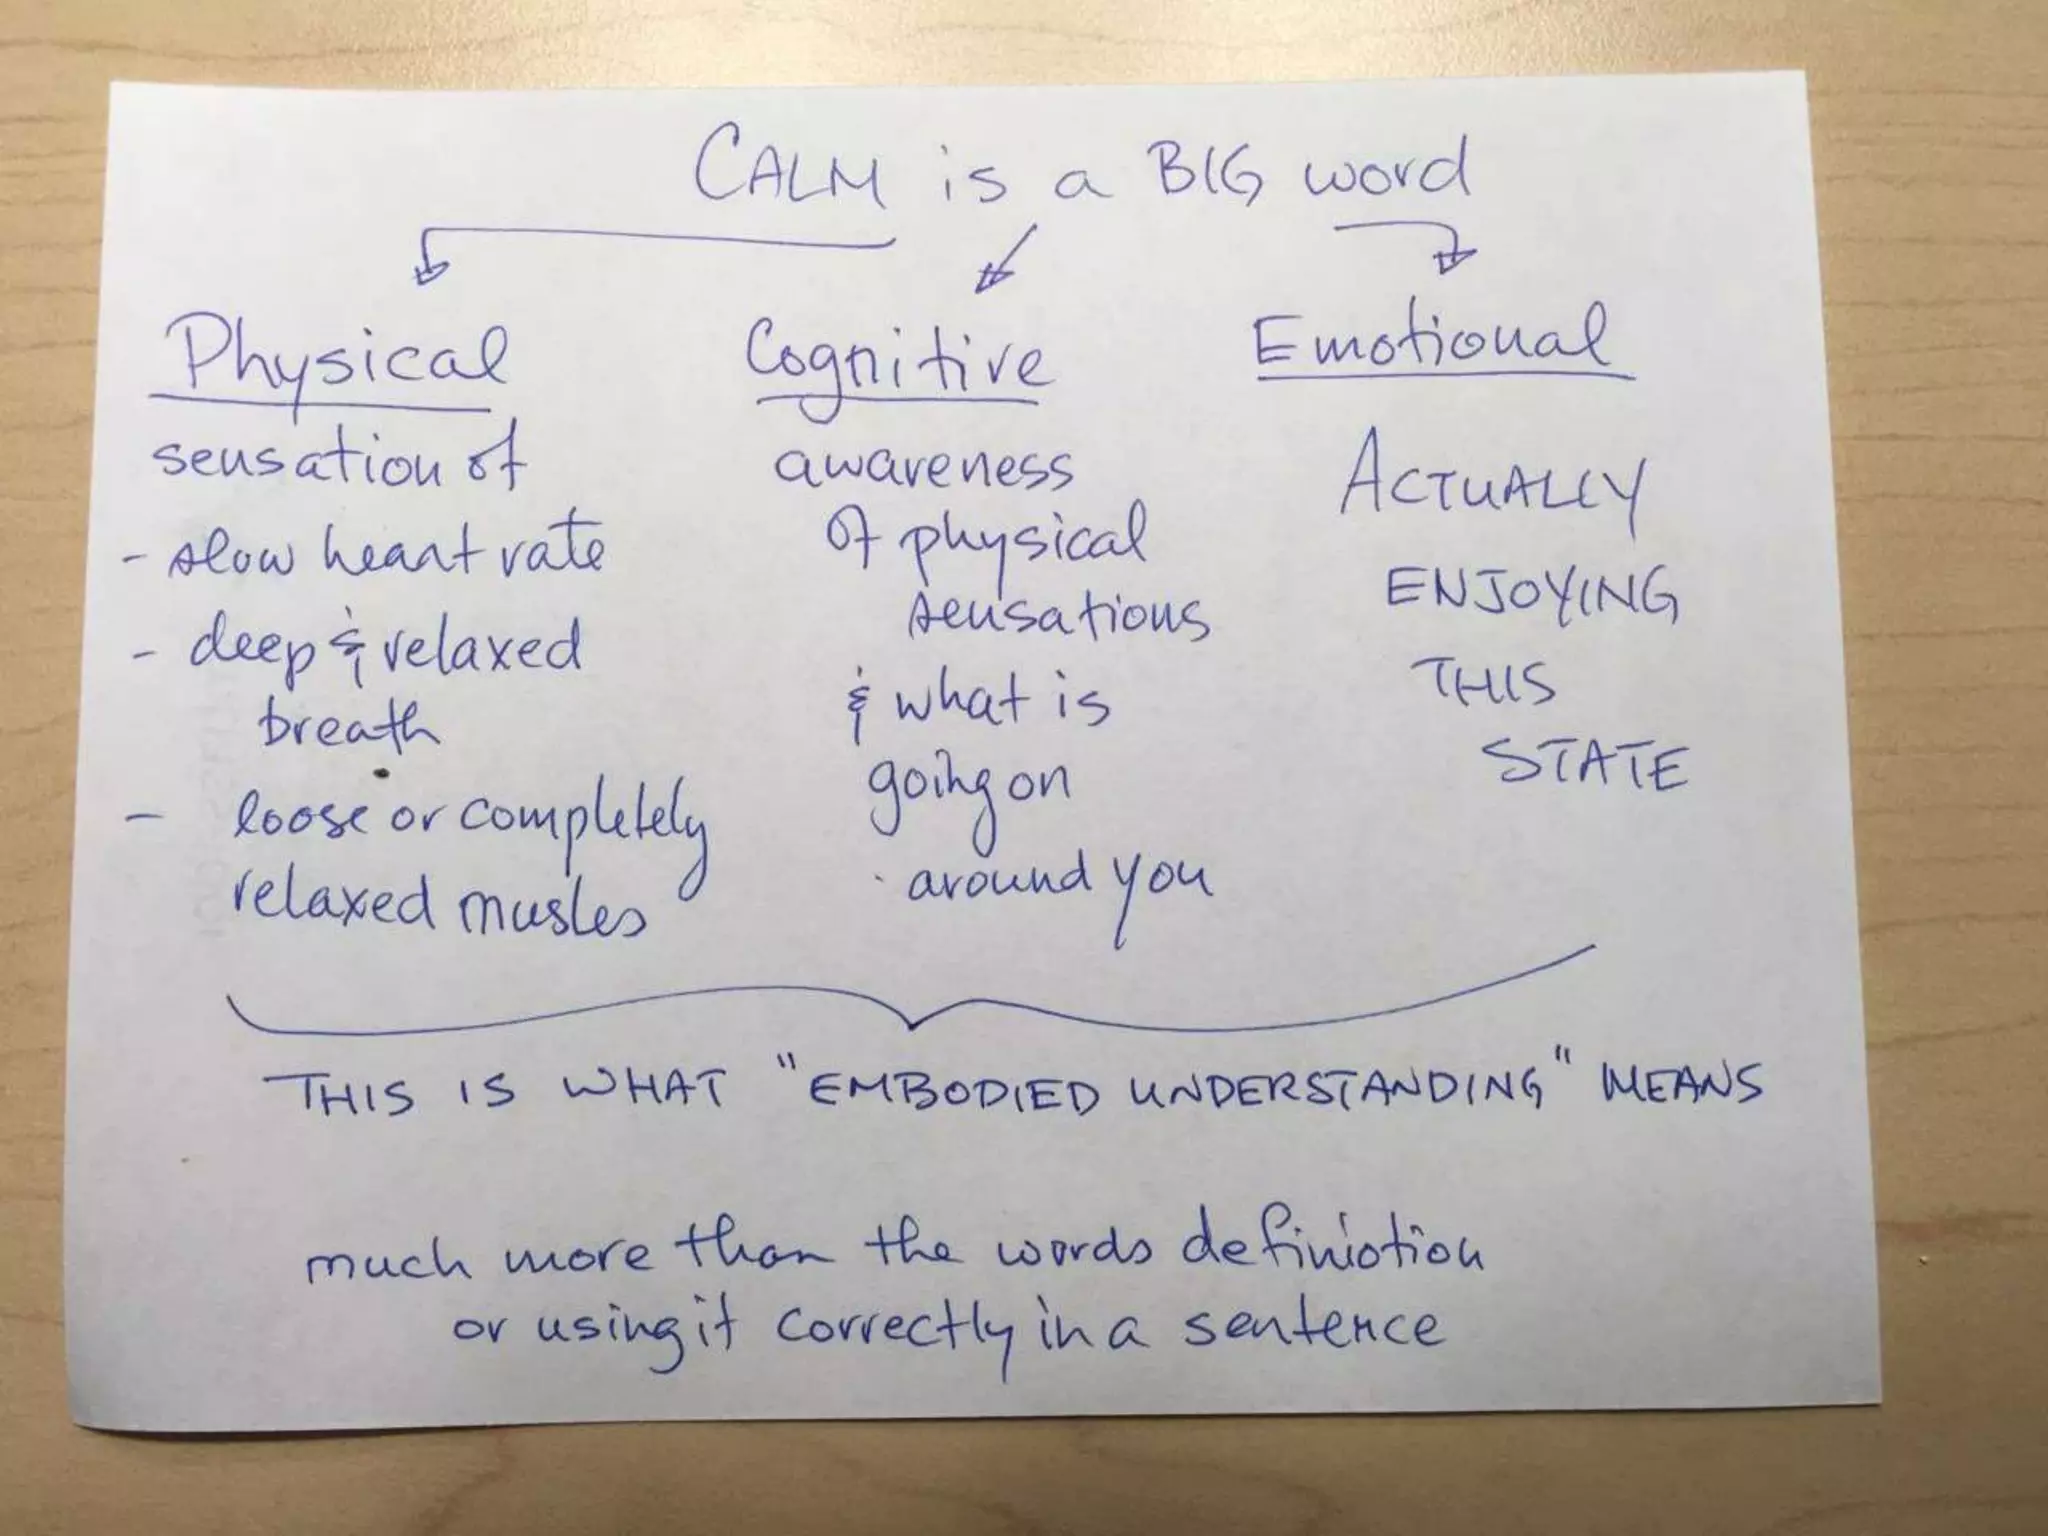 CALM is a BIG word
Physical
sensation of
- slow heart rate
- deep & relaxed
breath
- loose or completely
relaxed musles
Cognitive
awareness
of physical
sensations
& what is
going on
around you
Emotional
ACTUALLY
ENJOYING
THIS
STATE
THIS IS WHAT "EMBODIED UNDERSTANDING" MEANS
much more than the words definiotion
or using it correctly in a sentence